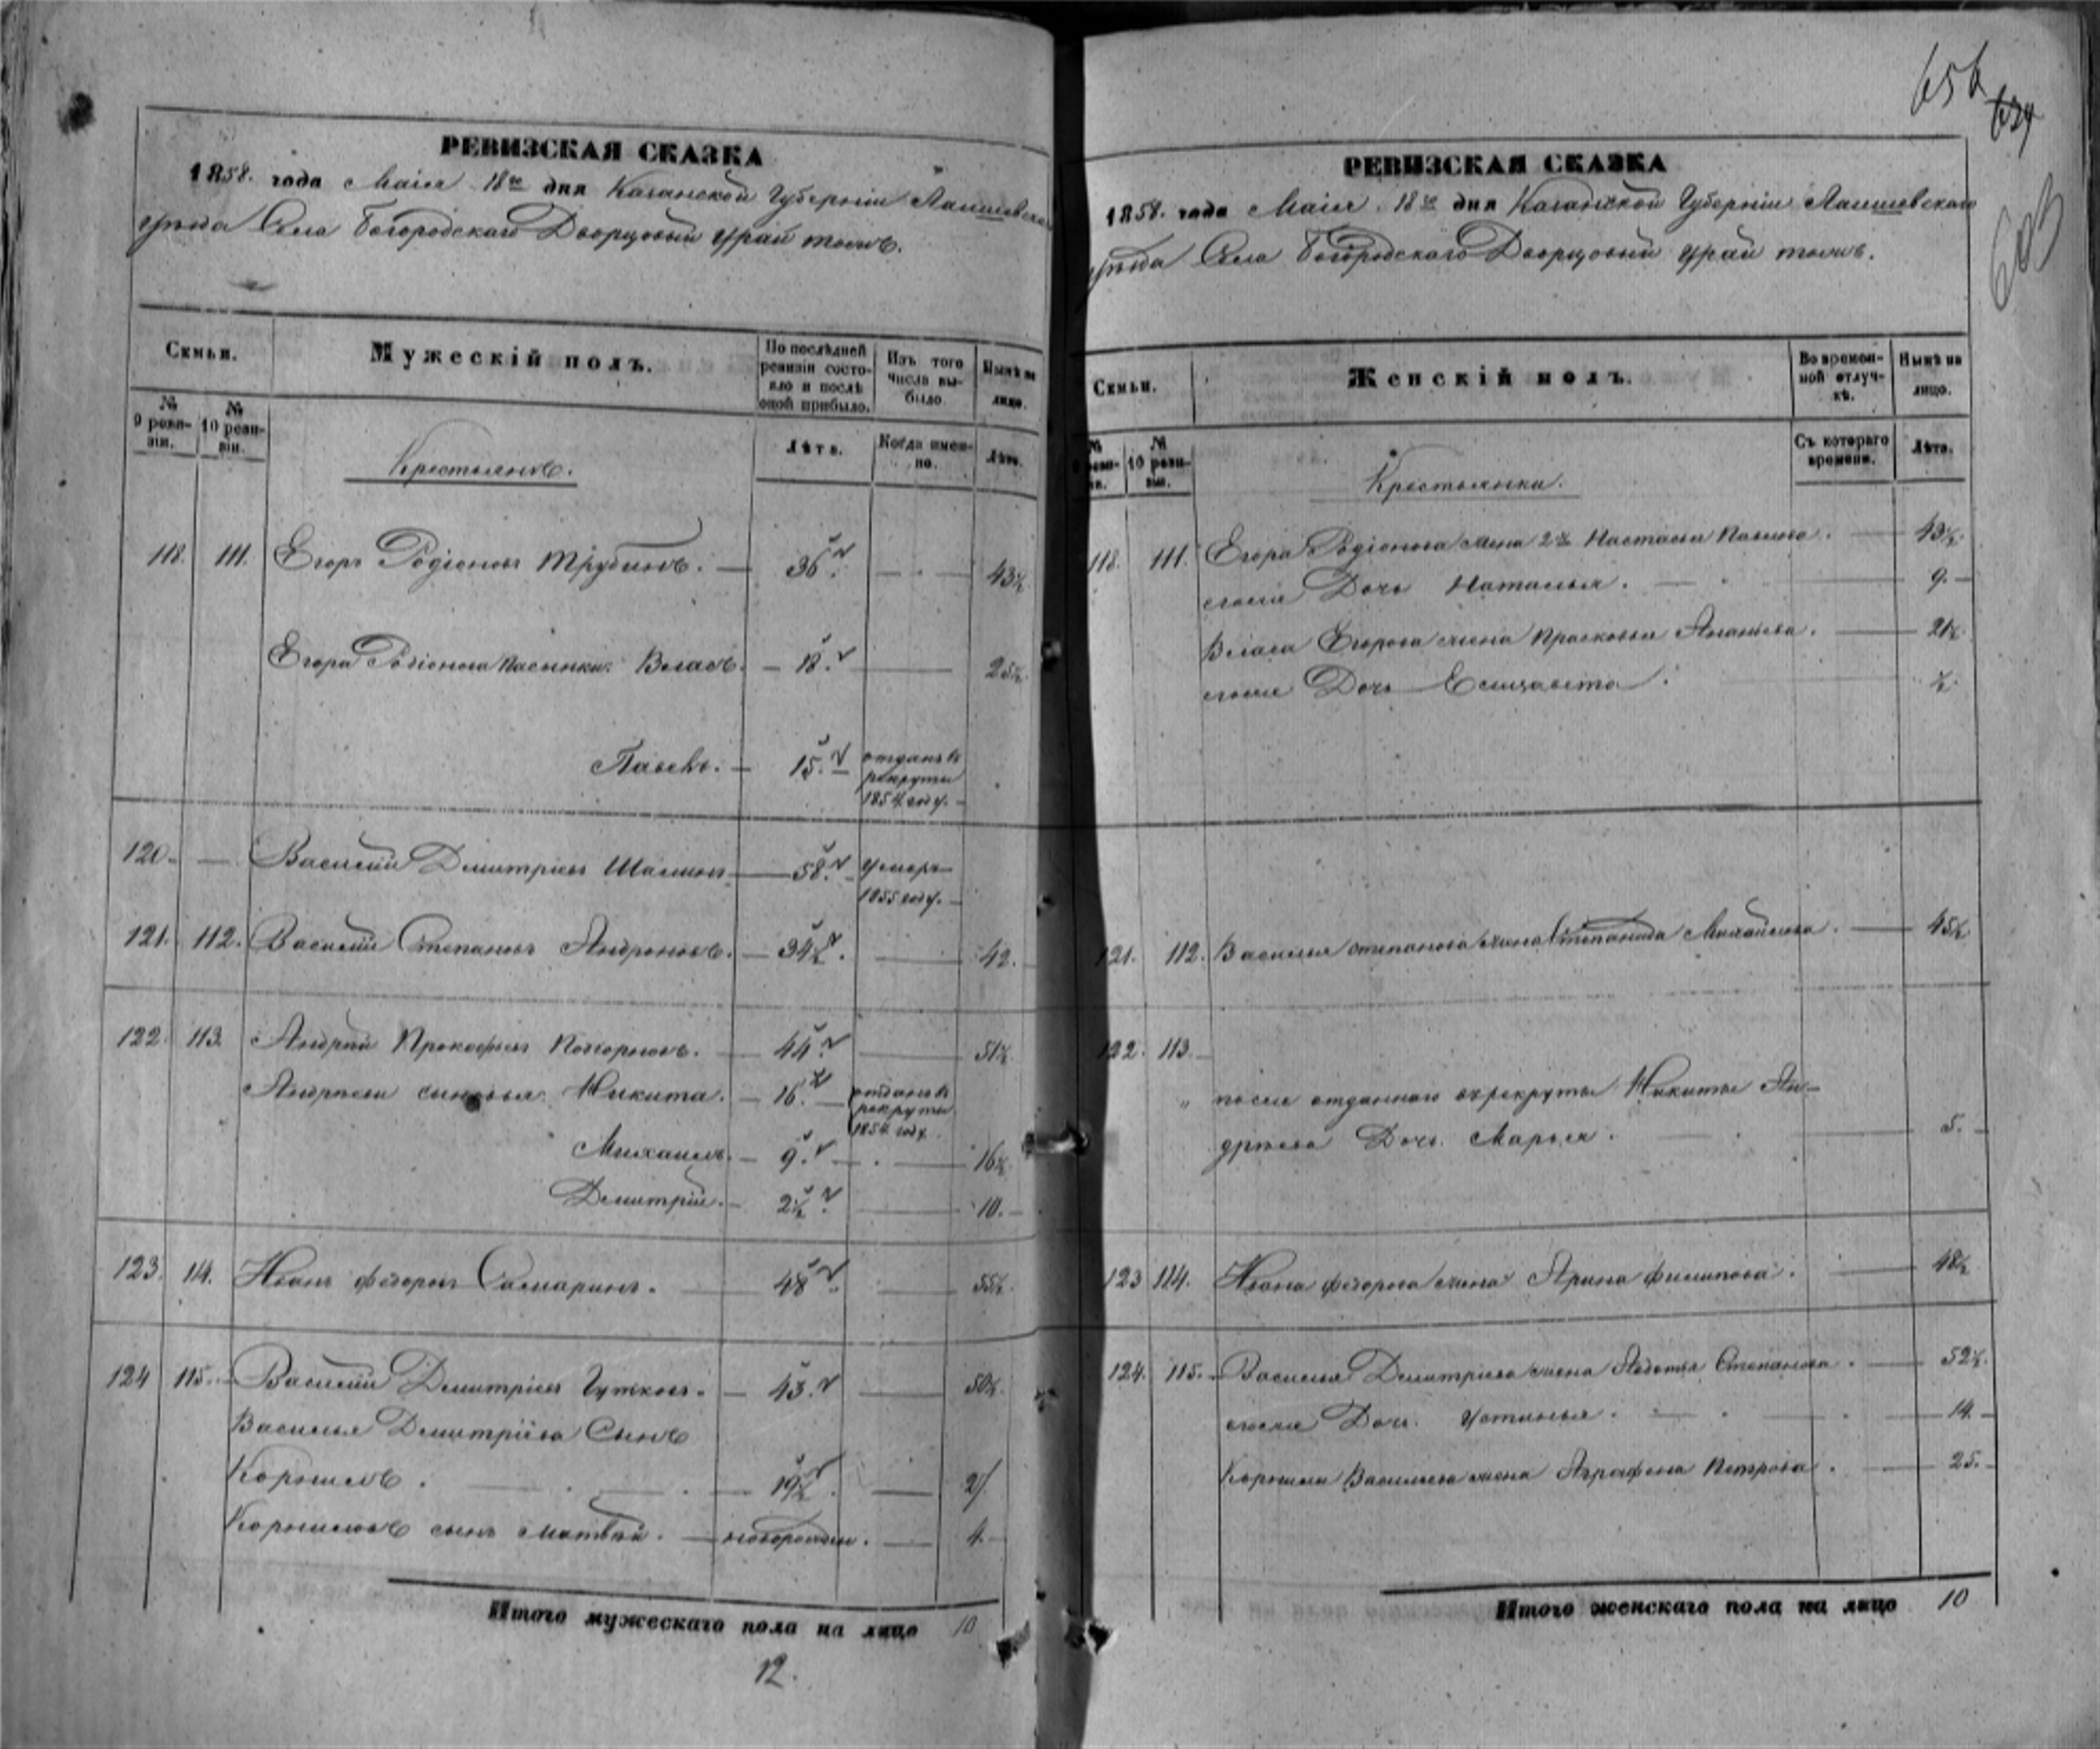 РЕВИЗСКАЯ СКАЗКА
1858. года Маія 18го дня Казанской Губерніи Лаишевскаго
уѣзда Села Богородскаго Дворцовый Урай тожъ.
Семьи.
Мужескій полъ.
По послѣдней ревизіи состояло и послѣ оной прибыло.
Изъ того числа выбыло.
Нынѣ на лицо.
№ 9 ревизіи.
№ 10 ревизіи.
Лѣта.
Когда именно.
Лѣта.
Крестьянъ.
118. 111. Егоръ Родіоновъ Трубинъ. 36. 43½
Егора Родіонова пасынки: Власъ. 18. 25½
Павелъ. 15. отданъ въ рекруты 1854 году.
120. Василій Димитріевъ 58. умеръ 1855 году.
121. 112. Василій Степановъ Андроновъ. 34½. 42.
122. 113. Андрей Прокофьевъ 44. 51½
Андреевы сыновья: Никита. 16. отданъ въ рекруты 1854 году.
Михаилъ. 9. 16½
Димитрій. 2½. 10.
123. 114. Иванъ Федоровъ Самаринъ. 48. 55½
124 115. Василій Димитріевъ Гутковъ. 43. 50½.
Василья Димитріева Сынъ
Корнилъ. 19½. 27
Корниловъ сынъ Матвей. новорожден. 4.
Итого мужескаго пола на лицо 10
12.
656
РЕВИЗСКАЯ СКАЗКА
1858. года Маія 18го дня Казанской Губерніи Лаишевскаго
уѣзда Села Богородскаго Дворцовый Урай тожъ.
Семьи.
Женскій полъ.
Во временной отлучкѣ.
Нынѣ на лицо.
№ 9 ревизіи.
№ 10 ревизіи.
Съ котораго времени.
Лѣта.
Крестьянки.
118. 111. Егора Родіонова жена 2я Настасья Павлова. 43½.
его Дочь Наталья. 9.
Власа Егорова жена Прасковья Ананьева. 21½.
его Дочь Елизавета. ½.
121. 112. Василья Степанова жена Степанида Михайлова. 45½
122. 113.
„ после отданнаго въ рекруты Никиты Ан-
дреева Дочь Марья. 5.
123 114. Ивана Федорова жена Арина Филипова. 48½
124. 115. Василья Димитріева жена Авдотья Степанова. 52½.
его Дочь Устинья. 14.
Корнила Васильева жена Аграфена Петрова. 25.
Итого женскаго пола на лицо 10